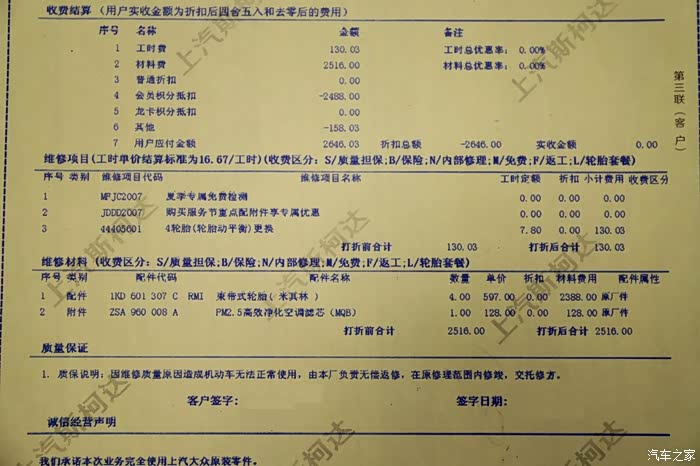 收费结算 (用户实收金额为折扣后四舍五入和去零后的费用)
序号 名称 金额 备注
1 工时费 130.03 工时总优惠率: 0.00%
2 材料费 2516.00 材料总优惠率: 0.00%
3 普通折扣 0.00
4 会员积分抵扣 -2488.00
5 龙卡积分抵扣 0.00
6 其他 -158.03
7 用户应付金额 2646.03 折扣总额 -2646.00 实收金额 0.00
维修项目(工时单价结算标准为16.67/工时)(收费区分: S/质量担保;B/保险;N/内部修理;M/免费;F/返工;L/轮胎套餐)
序号 类别 维修项目代码 维修项目名称 工时定额 折扣 小计费用 收费区分
1 MFJC2007 夏季专属免费检测 0.00 0.00 0.00
2 JDDD2007 购买服务节重点配附件享专属优惠 0.00 0.00 0.00
3 44405601 4轮胎(轮胎动平衡)更换 7.80 0.00 130.03
打折前合计 130.03 打折后合计 130.03
维修材料 (收费区分: S/质量担保;B/保险;N/内部修理;M/免费;F/返工;L/轮胎套餐)
序号 类别 配件代码 配件名称 数量 单价 折扣 材料费用 配件属性
1 配件 1KD 601 307 C RMI 束带式轮胎(米其林) 4.00 597.00 0.00 2388.00 原厂件
2 附件 ZSA 960 008 A PM2.5高效净化空调滤芯(MQB) 1.00 128.00 0.00 128.00 原厂件
打折前合计 2516.00 打折后合计 2516.00
质量保证
1. 质保说明: 因维修质量原因造成机动车无法正常使用, 由本厂负责无偿返修, 在原修理范围内修竣, 交托修方。
客户签字: 签字日期:
诚信经营声明
我们承诺本次业务完全使用上汽大众原装零件。
第三联(客户)
上汽斯柯达
上汽斯柯达
上汽斯柯达
上汽斯柯达
上汽斯柯达
汽车之家